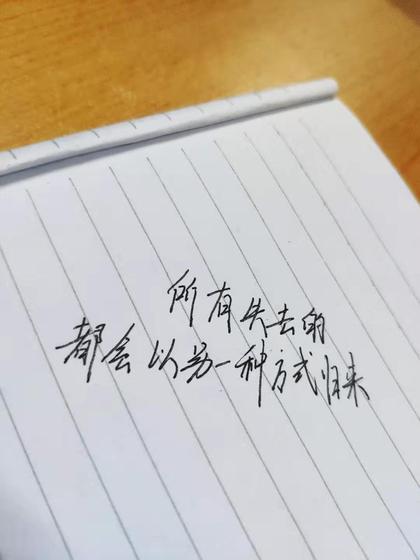 所有失去的
都会以另一种方式归来